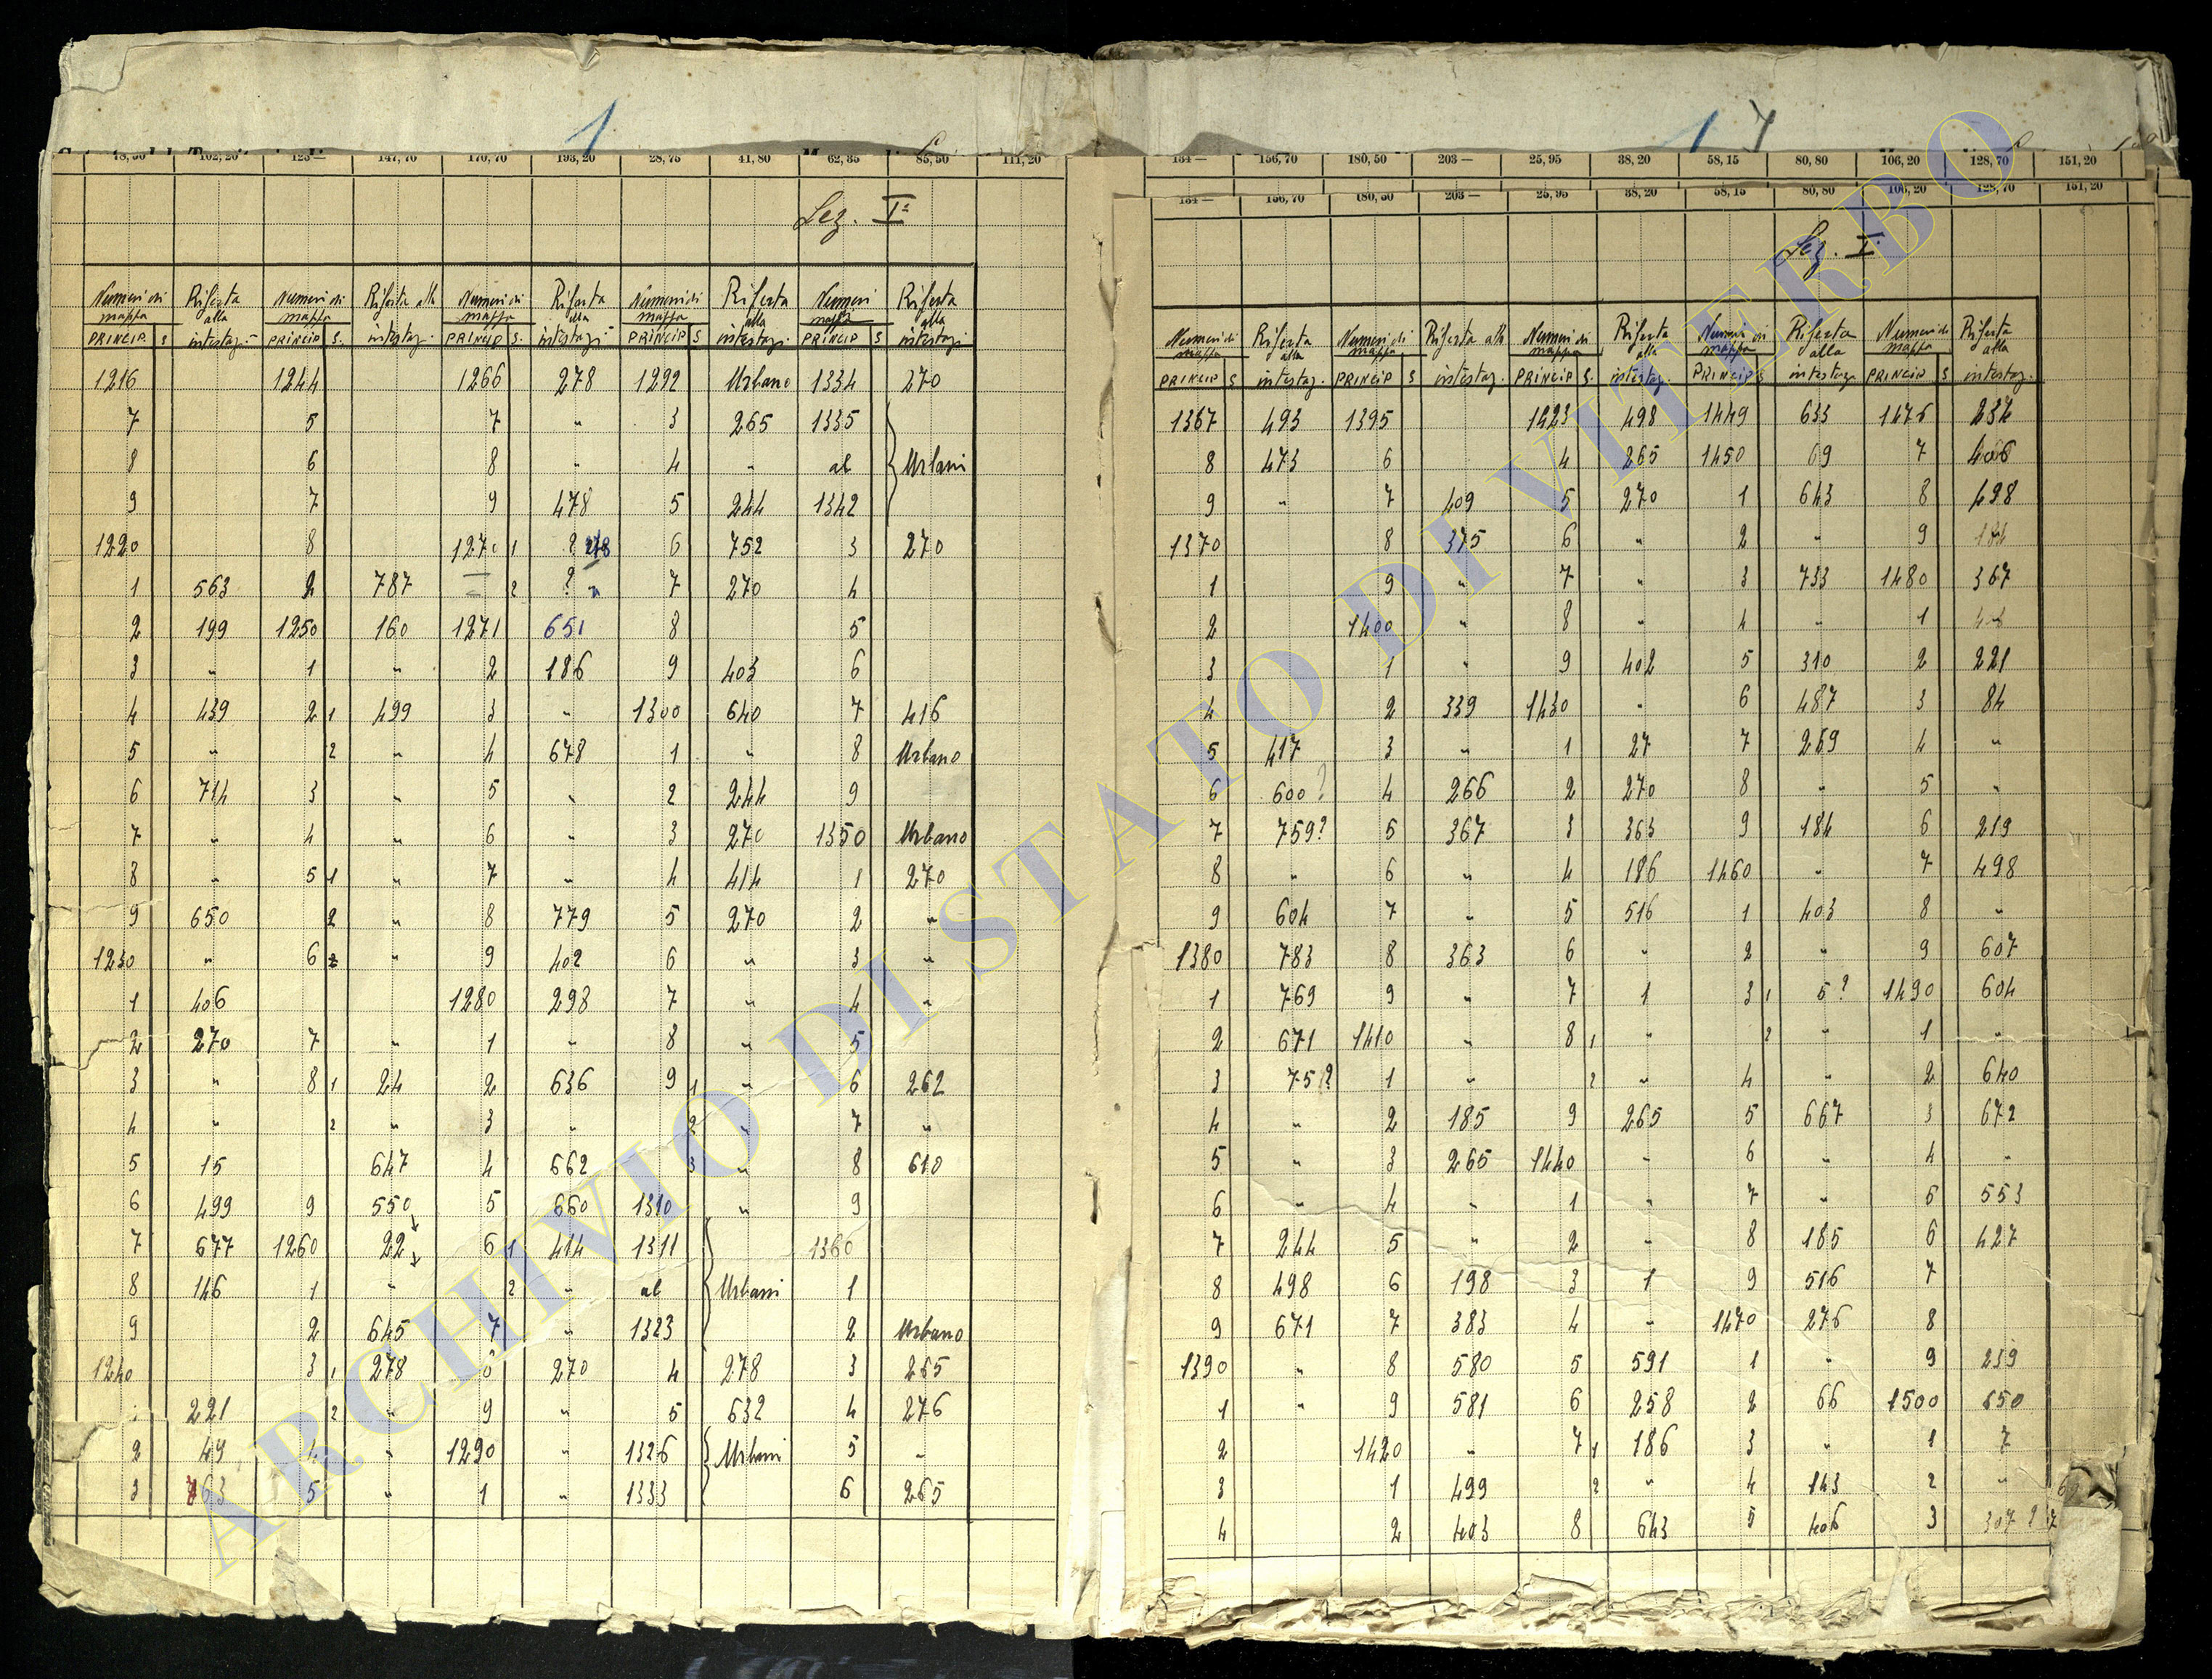 1
78,50 102,20 125— 147,70 170,70 193,20 28,75 41,80 62,35 85,50 111,20
Sez. Iª
Numeri di mappa Riferta alla intestaz. Numeri di mappa Riferta alla intestaz. Numeri di mappa Riferta alla intestaz. Numeri di mappa Riferta alla intestaz. Numeri mappa Riferta alla intestaz.
PRINCIP. S PRINCIP S. PRINCIP S. PRINCIP S PRINCIP S
1216 1244 1266 278 1292 Urbano 1334 270
7 5 7 " 3 265 1335
8 6 8 " 4 " al Urbani
9 7 9 478 5 244 1342
1220 8 1270 1 ? 278 6 752 3 270
1 563 2 787 2 ? " 7 270 4
2 199 1250 160 1271 651 8 5
3 " 1 " 2 186 9 403 6
4 439 2 1 499 3 " 1300 640 7 416
5 " 2 " 4 678 1 " 8 Urbano
6 714 3 " 5 " 2 244 9
7 " 4 " 6 " 3 270 1350 Urbano
8 " 5 1 " 7 " 4 414 1 270
9 650 2 " 8 779 5 270 2 "
1230 " 6 " 9 402 6 " 3 "
1 406 1280 298 7 " 4 "
2 270 7 " 1 " 8 " 5
3 " 8 1 24 2 636 9 1 " 6 262
4 " 2 " 3 " 2 " 7 "
5 15 647 4 662 3 " 8 610
6 499 9 550 5 660 1310 " 9
7 677 1260 22 6 1 414 1311 1360
8 146 1 " 2 " al Urbani 1
9 2 645 7 " 1323 2 Urbano
1240 3 1 278 8 270 4 278 3 265
221 2 " 9 " 5 632 4 276
2 49 4 " 1290 " 1326 Urbani 5 "
3 763 5 " 1 " 1333 6 265
17
134— 156,70 180,50 203— 25,95 38,20 58,15 80,80 106,20 128,70 151,20
134— 156,70 180,50 203— 25,95 38,20 58,15 80,80 106,20 128,70 151,20
Sez. I
Numeri di mappa Riferta alla intestaz. Numeri di mappa Riferta alla intestaz. Numeri di mappa Riferta alla intestaz. Numeri di mappa Riferta alla intestaz. Numeri di mappa Riferta alla intestaz.
PRINCIP S PRINCIP S PRINCIP S. PRINCIP S PRINCIP S
1367 493 1395 1423 498 1449 633 1476 234
8 473 6 4 265 1450 69 7 406
9 " 7 409 5 270 1 643 8 498
1370 8 375 6 " 2 " 9 184
1 9 " 7 " 3 733 1480 367
2 1400 " 8 " 4 " 1
3 1 " 9 402 5 310 2 221
4 2 339 1430 " 6 487 3 84
5 417 3 " 1 27 7 269 4 "
6 600? 4 266 2 270 8 " 5 "
7 759? 5 367 3 363 9 184 6 219
8 " 6 " 4 186 1460 " 7 498
9 604 7 " 5 516 1 403 8 "
1380 783 8 363 6 " 2 " 9 607
1 769 9 " 7 1 3 1 5? 1490 604
2 671 1410 " 8 1 " 2 " 1 "
3 75? 1 " 2 " 4 " 2 640
4 " 2 185 9 265 5 667 3 672
5 " 3 265 1440 " 6 " 4 "
6 " 4 " 1 " 7 " 5 553
7 244 5 " 2 " 8 185 6 427
8 498 6 198 3 1 9 516 7
9 671 7 383 4 " 1470 276 8
1390 " 8 580 5 591 1 " 9 239
1 " 9 581 6 258 2 66 1500 650
2 1420 " 7 1 186 3 " 1 7
3 1 499 2 " 4 143 2 "
4 2 403 8 643 5 406 3 307 ? 7
ARCHIVIO DI STATO DI VITERBO